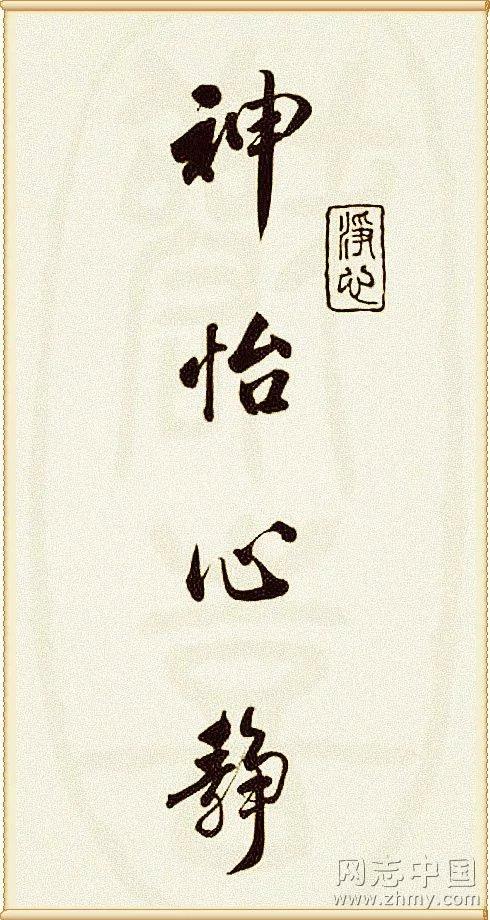 神怡心静
淨心
网志中国
www.zhmy.com